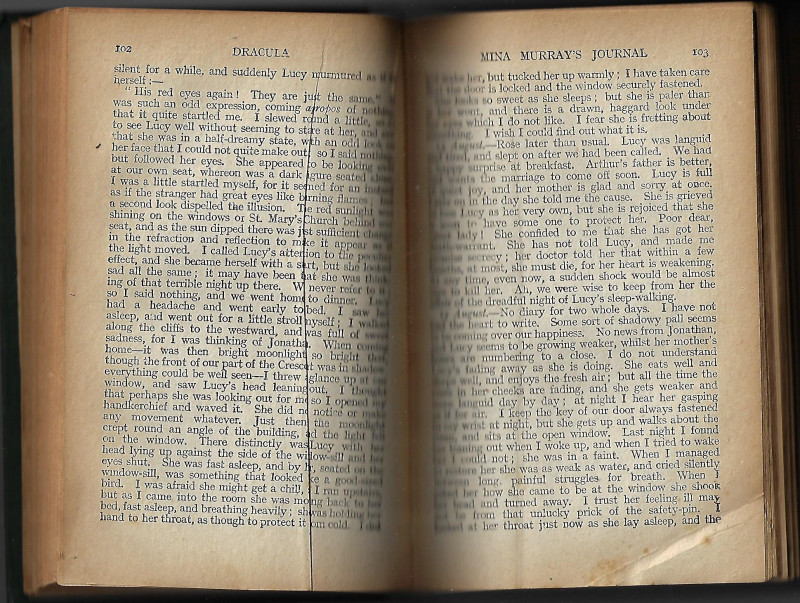 102 DRACULA
silent for a while, and suddenly Lucy murmured as
herself :—
" His red eyes again ! They are just the same."
was such an odd expression, coming apropos of
that it quite startled me. I slewed round a little, so
to see Lucy well without seeming to stare at her, and
that she was in a half-dreamy state, with an odd look
her face that I could not quite make out ; so I said
but followed her eyes. She appeared to be looking
at our own seat, whereon was a dark figure seated
I was a little startled myself, for it seemed for an
as if the stranger had great eyes like burning flames ;
a second look dispelled the illusion. The red sunlight
shining on the windows or St. Mary's Church behind
seat, and as the sun dipped there was just sufficient
in the refraction and reflection to make it appear as
the light moved. I called Lucy's attention to the
effect, and she became herself with a start, but she
sad all the same ; it may have been that she was
ing of that terrible night up there. We never refer to
so I said nothing, and we went home to dinner.
had a headache and went early to bed. I saw
asleep, and went out for a little stroll myself ; I
along the cliffs to the westward, and was full of
sadness, for I was thinking of Jonathan. When coming
home—it was then bright moonlight, so bright that
though the front of our part of the Crescent was in
everything could be well seen—I threw a glance up at
window, and saw Lucy's head leaning out. I
that perhaps she was looking out for me, so I opened
handkerchief and waved it. She did not notice or make
any movement whatever. Just then, the moonlight
crept round an angle of the building, and the light
on the window. There distinctly was Lucy with
head lying up against the side of the window-sill and
eyes shut. She was fast asleep, and by her, seated on
window-sill, was something that looked like a
bird. I was afraid she might get a chill, so I ran
but as I came into the room she was moving back to
bed, fast asleep, and breathing heavily ; she was holding
hand to her throat, as though to protect it from cold.
MINA MURRAY'S JOURNAL 103
her, but tucked her up warmly ; I have taken care
door is locked and the window securely fastened.
so sweet as she sleeps ; but she is paler than
wont, and there is a drawn, haggard look under
which I do not like. I fear she is fretting about
I wish I could find out what it is.
—Rose later than usual. Lucy was languid
and slept on after we had been called. We had
surprise at breakfast. Arthur's father is better,
the marriage to come off soon. Lucy is full
joy, and her mother is glad and sorry at once.
on in the day she told me the cause. She is grieved
Lucy as her very own, but she is rejoiced that she
to have some one to protect her. Poor dear,
lady ! She confided to me that she has got her
She has not told Lucy, and made me
secrecy ; her doctor told her that within a few
at most, she must die, for her heart is weakening.
time, even now, a sudden shock would be almost
to kill her. Ah, we were wise to keep from her the
of the dreadful night of Lucy's sleep-walking.
—No diary for two whole days. I have not
the heart to write. Some sort of shadowy pall seems
coming over our happiness. No news from Jonathan,
Lucy seems to be growing weaker, whilst her mother's
are numbering to a close. I do not understand
fading away as she is doing. She eats well and
well, and enjoys the fresh air ; but all the time the
in her cheeks are fading, and she gets weaker and
languid day by day ; at night I hear her gasping
for air. I keep the key of our door always fastened
wrist at night, but she gets up and walks about the
and sits at the open window. Last night I found
out when I woke up, and when I tried to wake
I could not ; she was in a faint. When I managed
her she was as weak as water, and cried silently
long, painful struggles for breath. When I
her how she came to be at the window she shook
head and turned away. I trust her feeling ill may
be from that unlucky prick of the safety-pin. I
at her throat just now as she lay asleep, and the